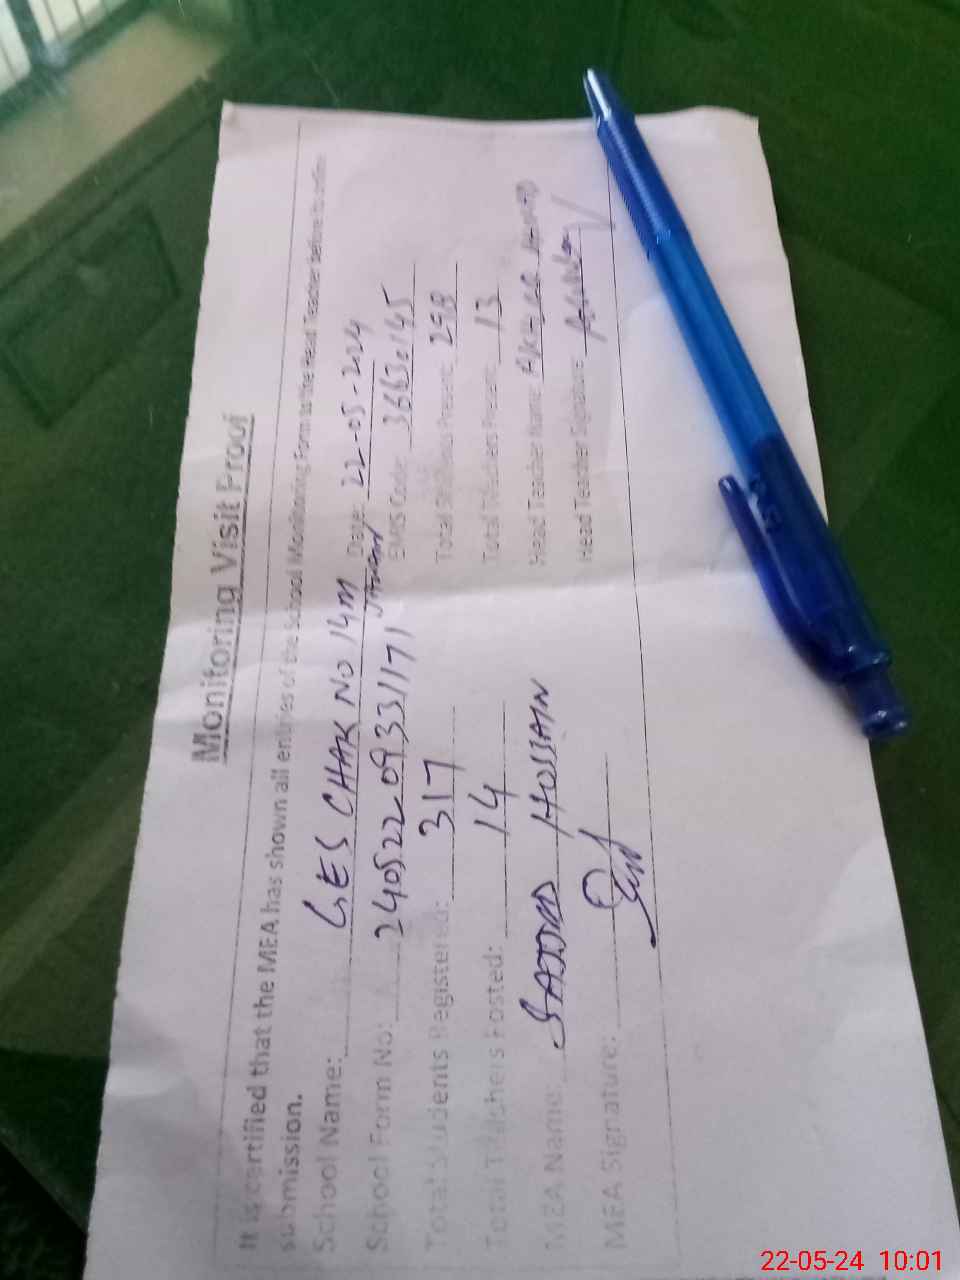 Monitoring Visit Proof
It is certified that the MEA has shown all entries of the School Monitoring Form to the Head Teacher before its online
submission.
School Name: GES CHAK NO 14M Date: 22-05-2024
School Form No: 240522093311171 EMIS Code: 36630145
Total Students Registered: 317 Total Students Present: 298
Total Teachers Posted: 14 Total Teachers Present: 13
MEA Name: SAJJAD HUSSAIN Head Teacher Name: AHMAD
MEA Signature: Head Teacher Signature:
22-05-24 10:01